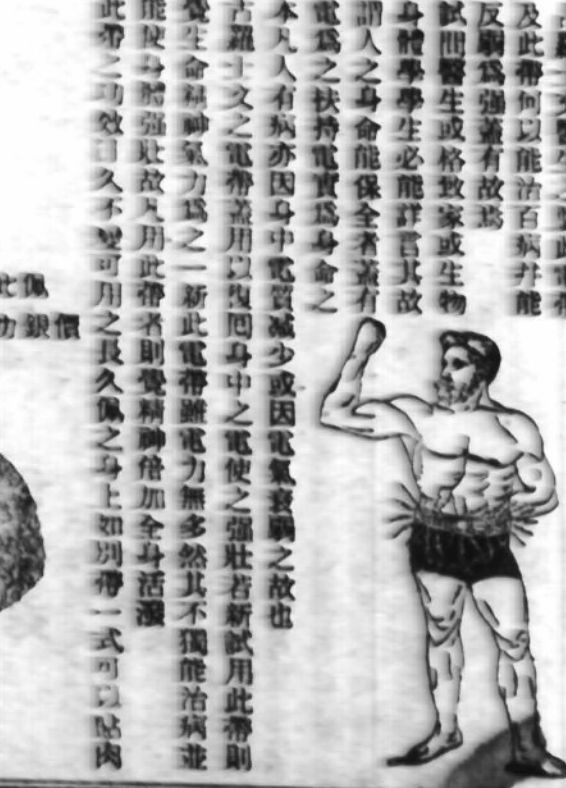 及此帶何以能治百病幷能
反弱爲强蓋有故焉
試問醫生或格致家或生物
身體學學生必能詳言其故
謂人之身命能保全者蓋有
電爲之扶持電實爲身命之
本凡人有病亦因身中電質減少或因電氣衰弱之故也
古羅士文之電帶蓋用以復囘身中之電使之强壯若新試用此帶則
覺生命精神氣力爲之一新此電帶雖電力無多然其不獨能治病並
能使身體强壯故凡用此帶者則覺精神倍加全身活潑
此帶之功效日久不變可用之長久佩之身上如別帶一式可以貼肉
價銀
佩此